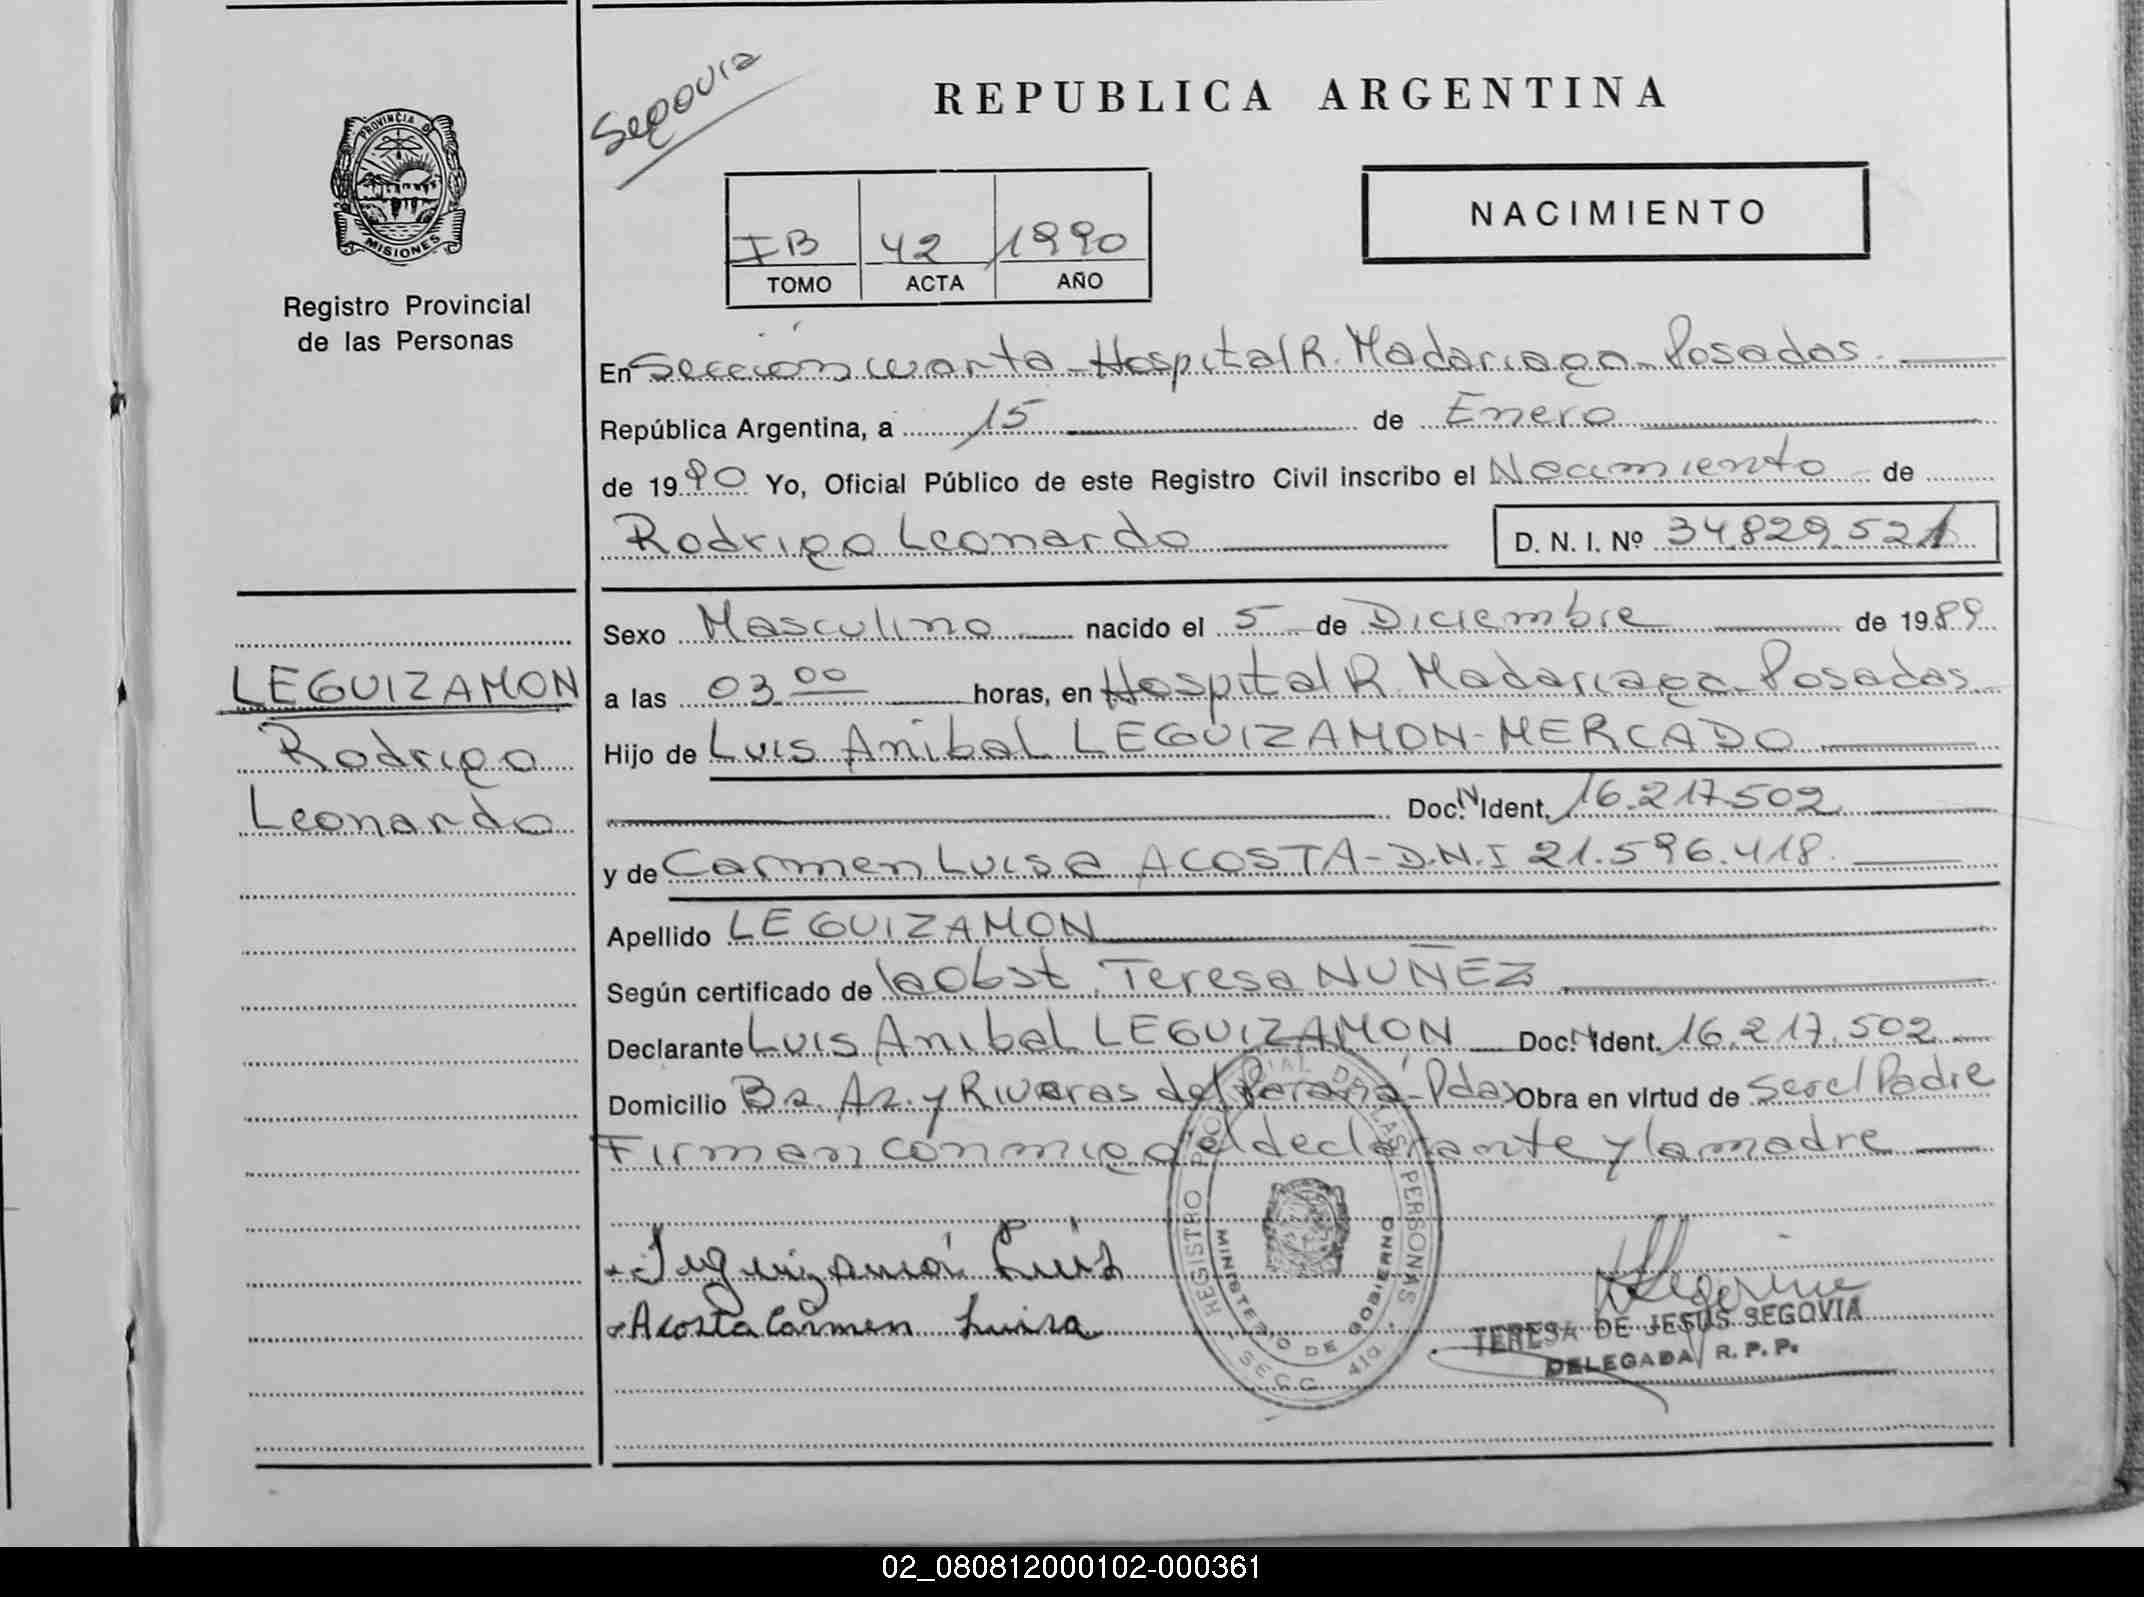 PROVINCIA DE
MISIONES
Registro Provincial
de las Personas
LEGUIZAMON
Rodrigo
Leonardo
Segovia
REPUBLICA ARGENTINA
IB 42 1990
TOMO ACTA AÑO
NACIMIENTO
En Sección cuarta - Hospital R. Madariaga - Posadas.
República Argentina, a 15 de Enero
de 1990 Yo, Oficial Público de este Registro Civil inscribo el Nacimiento de
Rodrigo Leonardo D. N. I. Nº 34.829.521
Sexo Masculino nacido el 5 de Diciembre de 1989
a las 03 00 horas, en Hospital R. Madariaga - Posadas
Hijo de Luis Anibal LEGUIZAMON - MERCADO
Doc. N Ident. 16.217.502
y de Carmen Luisa ACOSTA - D.N.I 21.596.418.
Apellido LEGUIZAMON
Según certificado de la Obst. Teresa NUÑEZ
Declarante Luis Anibal LEGUIZAMON Doc. N Ident. 16.217.502
Domicilio Bs. As. y Riveras del Paraná - Pdas Obra en virtud de ser el Padre
Firman conmigo el declarante y la madre
Leguizamón Luis
Acosta Carmen Luisa
REGISTRO PROVINCIAL DE LAS PERSONAS
MINISTERIO DE GOBIERNO
SECC. 4ta
TERESA DE JESUS SEGOVIA
DELEGADA R. P. P.
02_080812000102-000361